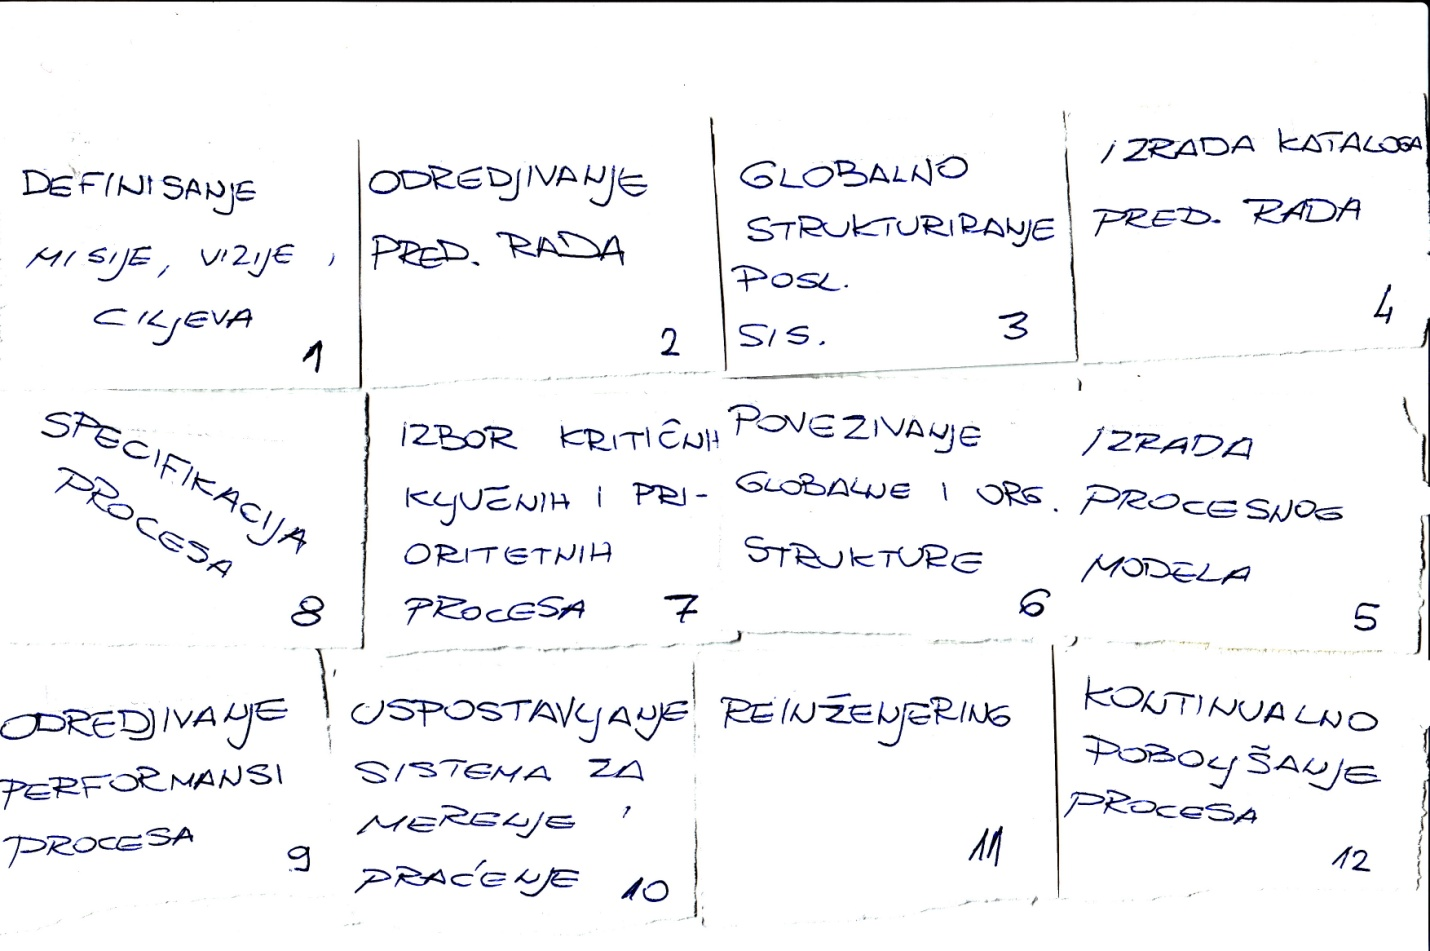 DEFINISANJE
MISIJE, VIZIJE,
CILJEVA
1
ODREDJIVANJE
PRED. RADA
2
GLOBALNO
STRUKTURIRANJE
POSL.
SIS.
3
IZRADA KATALOGA
PRED. RADA
4
SPECIFIKACIJA
PROCESA
8
IZBOR KRITIČNIH
KLJUČNIH I PRI-
ORITETNIH
PROCESA
7
POVEZIVANJE
GLOBALNE I ORG.
STRUKTURE
6
IZRADA
PROCESNOG
MODELA
5
ODREDJIVANJE
PERFORMANSI
PROCESA
9
USPOSTAVLJANJE
SISTEMA ZA
MERENJE I
PRAĆENJE
10
REINŽENJERING
11
KONTINUALNO
POBOLJŠANJE
PROCESA
12